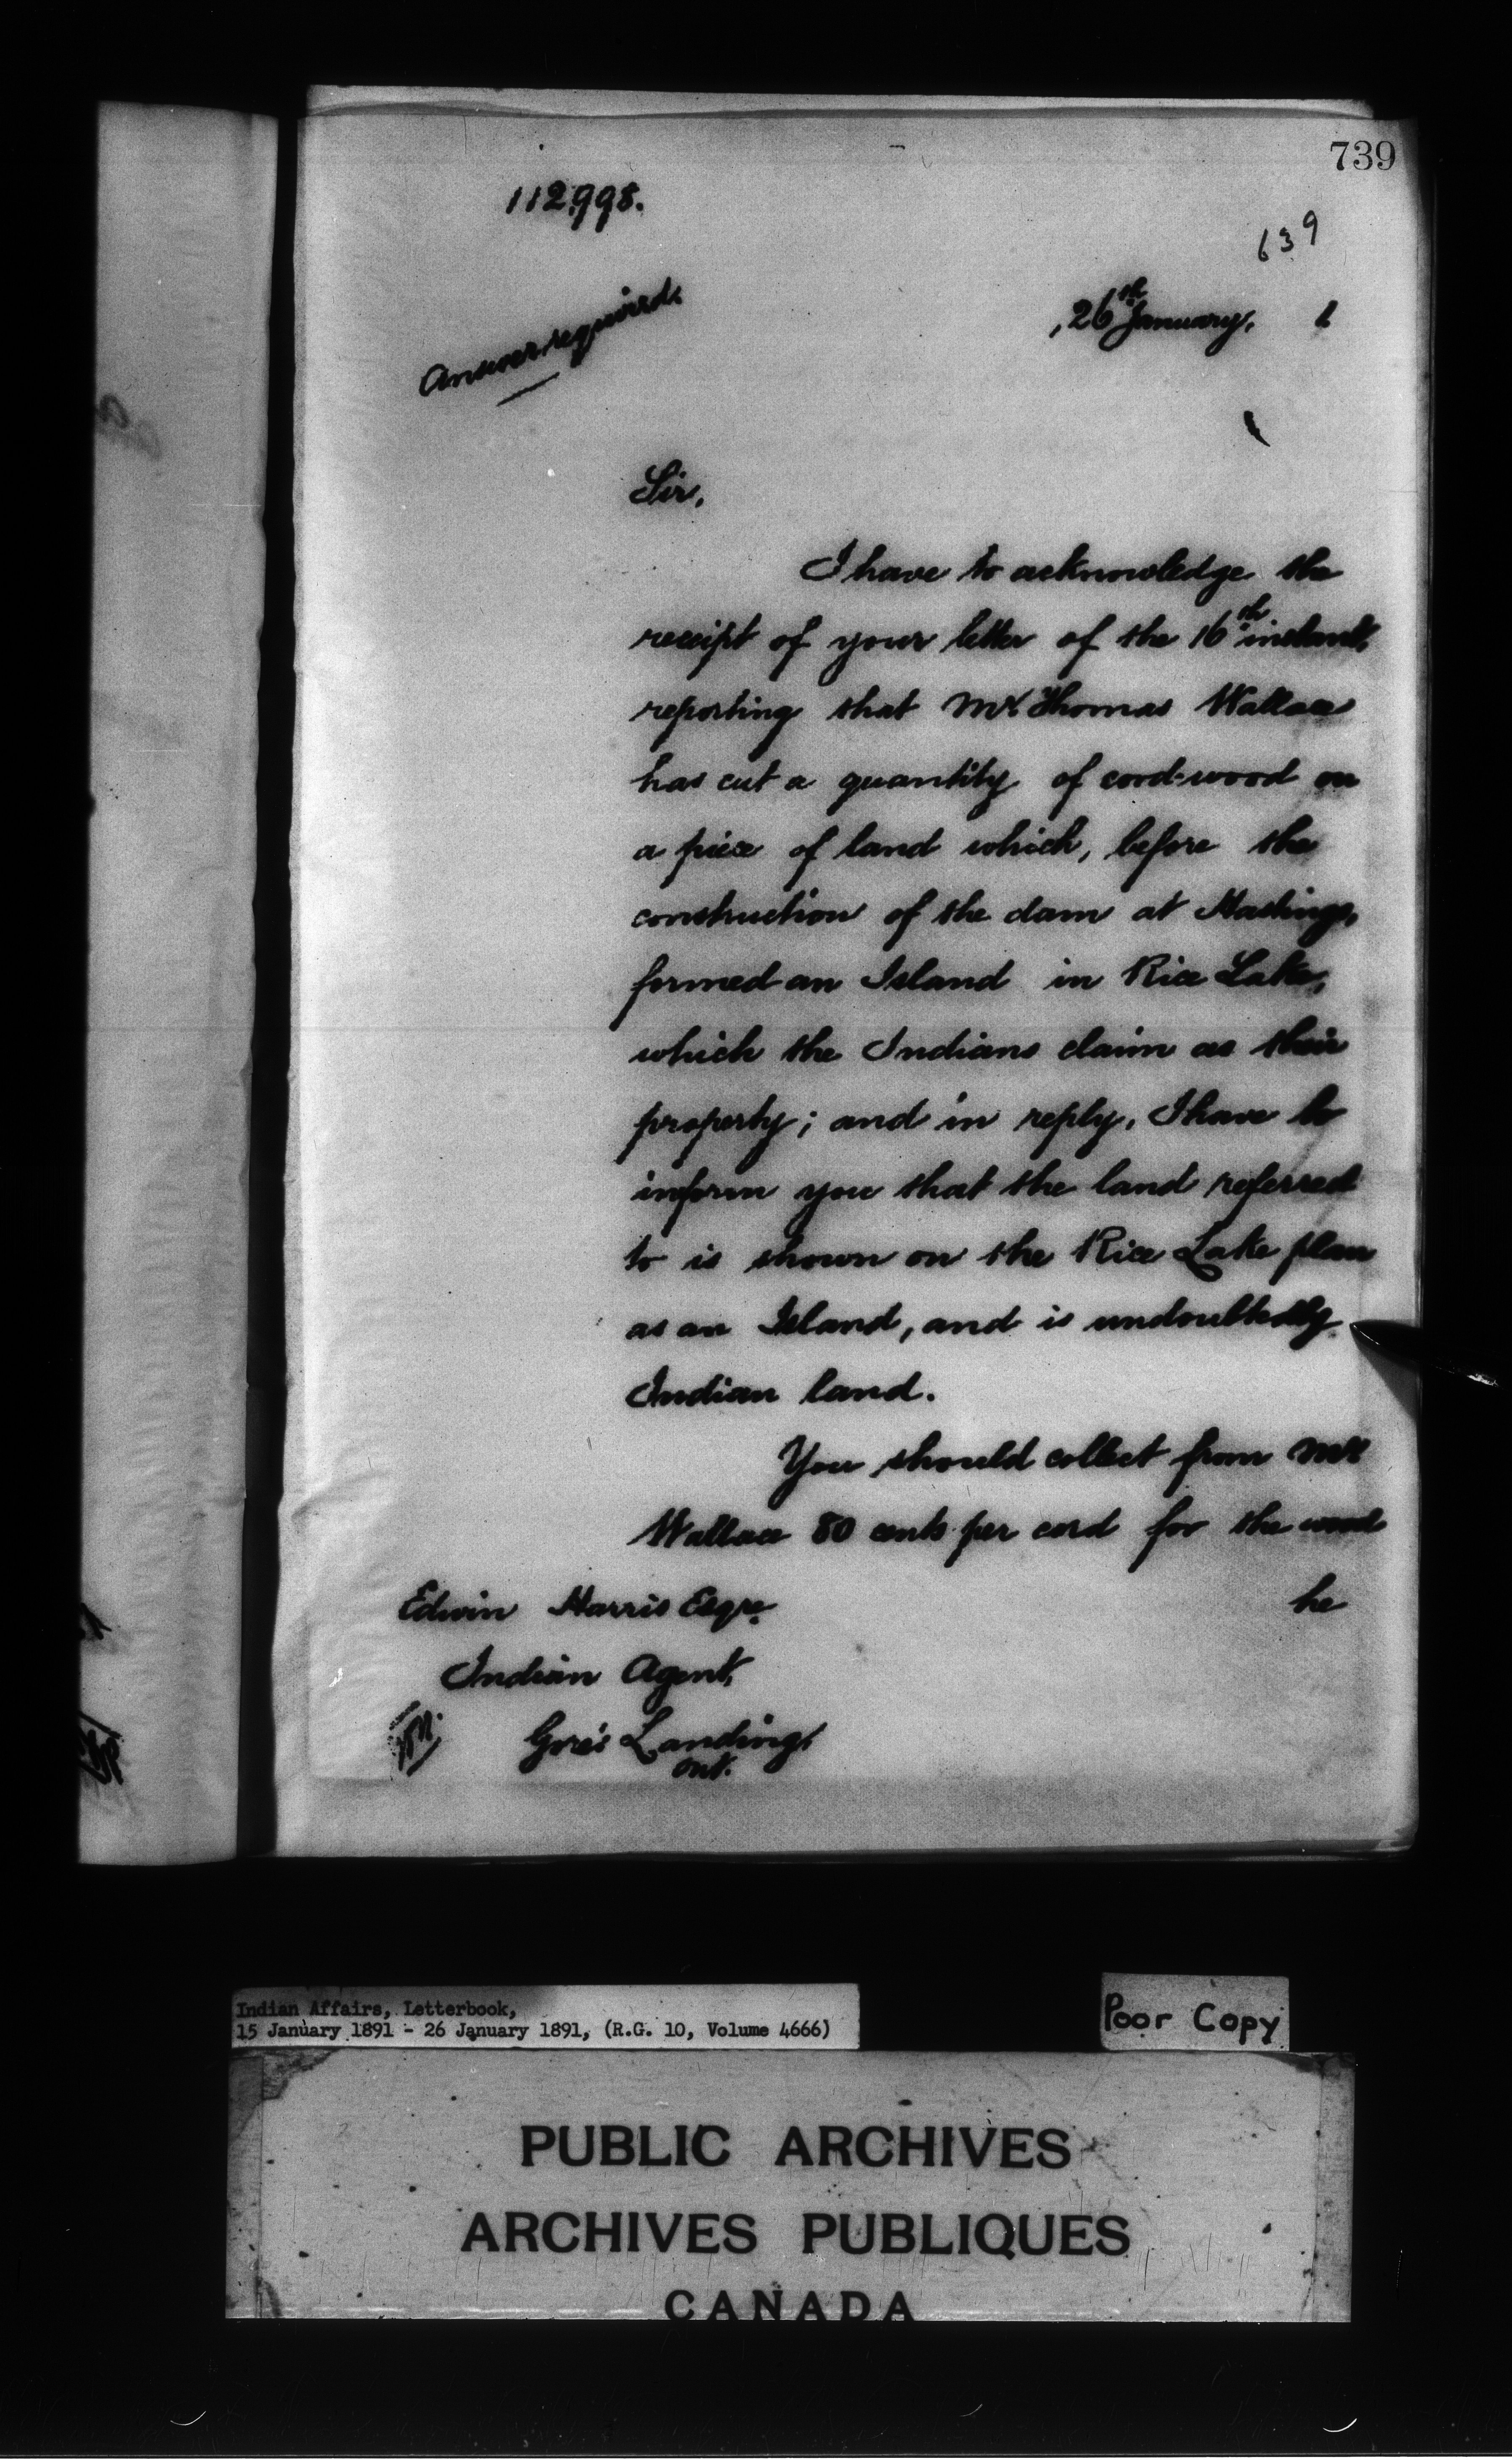 739
112,998.
639
Answer required.
, 26th January, 1
Sir,
I have to acknowledge the
receipt of your letter of the 16th instant,
reporting that Mr Thomas Wallace
has cut a quantity of cord-wood on
a piece of land which, before the
construction of the dam at Hastings,
formed an Island in Rice Lake,
which the Indians claim as their
property; and in reply, I have to
inform you that the land referred
to is shown on the Rice Lake plan
as an Island, and is undoubtedly
Indian land.
You should collect from Mr
Wallace 80 cents per cord for the wood
he
Edwin Harris Esqre.
Indian Agent,
Gore's Landing,
Ont.
Indian Affairs, Letterbook,
15 January 1891 - 26 January 1891, (R.G. 10, Volume 4666)
Poor Copy
PUBLIC ARCHIVES
ARCHIVES PUBLIQUES
CANADA